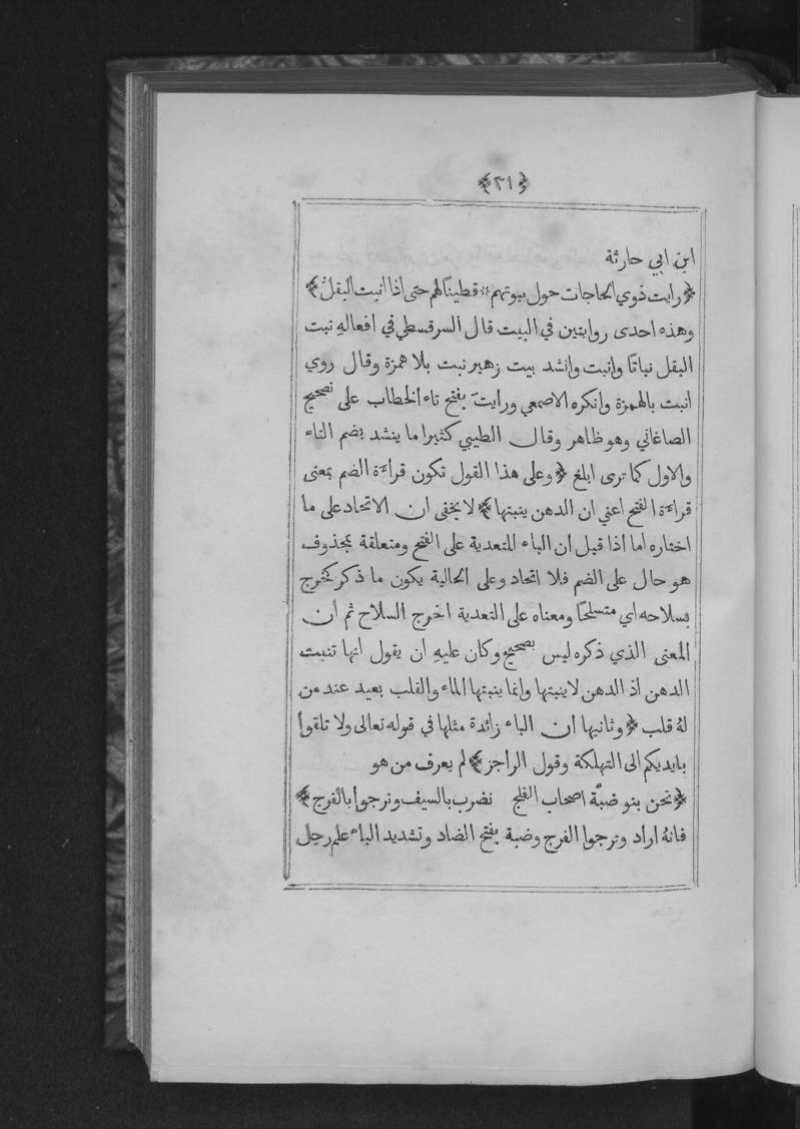 ﴿٣١﴾
ابن ابي حارثة
﴿رايت ذوي الحاجات حول بيوتهم * قطينًا لهم حتى اذا انبت البقلُ﴾
وهذه احدى روايتين في البيت قال السرقسطي في افعالهِ نبت
البقل نباتًا وانبت وانشد بيت زهير نبت بلا همزة وقال روي
انبت بالهمزة وانكره الاصمعي ورايتَ بفتح تاء الخطاب على تصحيح
الصاغاني وهو ظاهر وقال الطيبي كثيرا ما ينشد بضم التاء
والاول كما ترى ابلغ ﴿وعلى هذا القول تكون قراءة الضم بمعنى
قراءة الفتح اعني ان الدهن ينبتها﴾ لا يخفى ان الاتحاد على ما
اختاره اما اذا قيل ان الباء للتعدية على الفتح ومتعلقة بمحذوف
هو حال على الضم فلا اتحاد وعلى الحالية يكون ما ذكر كخرج
بسلاحه اي متسلحًا ومعناه على التعدية اخرج السلاح ثم ان
المعنى الذي ذكره ليس بصحيح وكان عليهِ ان يقول انها تنبت
الدهن اذ الدهن لا ينبتها وانما ينبتها الماء والقلب بعيد عند من
لهُ قلب ﴿وثانيها ان الباء زائدة مثلها في قوله تعالى ولا تلقوا
بايديكم الى التهلكة وقول الراجز﴾ لم يعرف من هو
﴿نحن بنو ضبّة اصحاب الفلج نضرب بالسيف ونرجوا بالفرج﴾
فانهُ اراد ونرجوا الفرج وضبة بفتح الضاد وتشديد الباء علم رجل